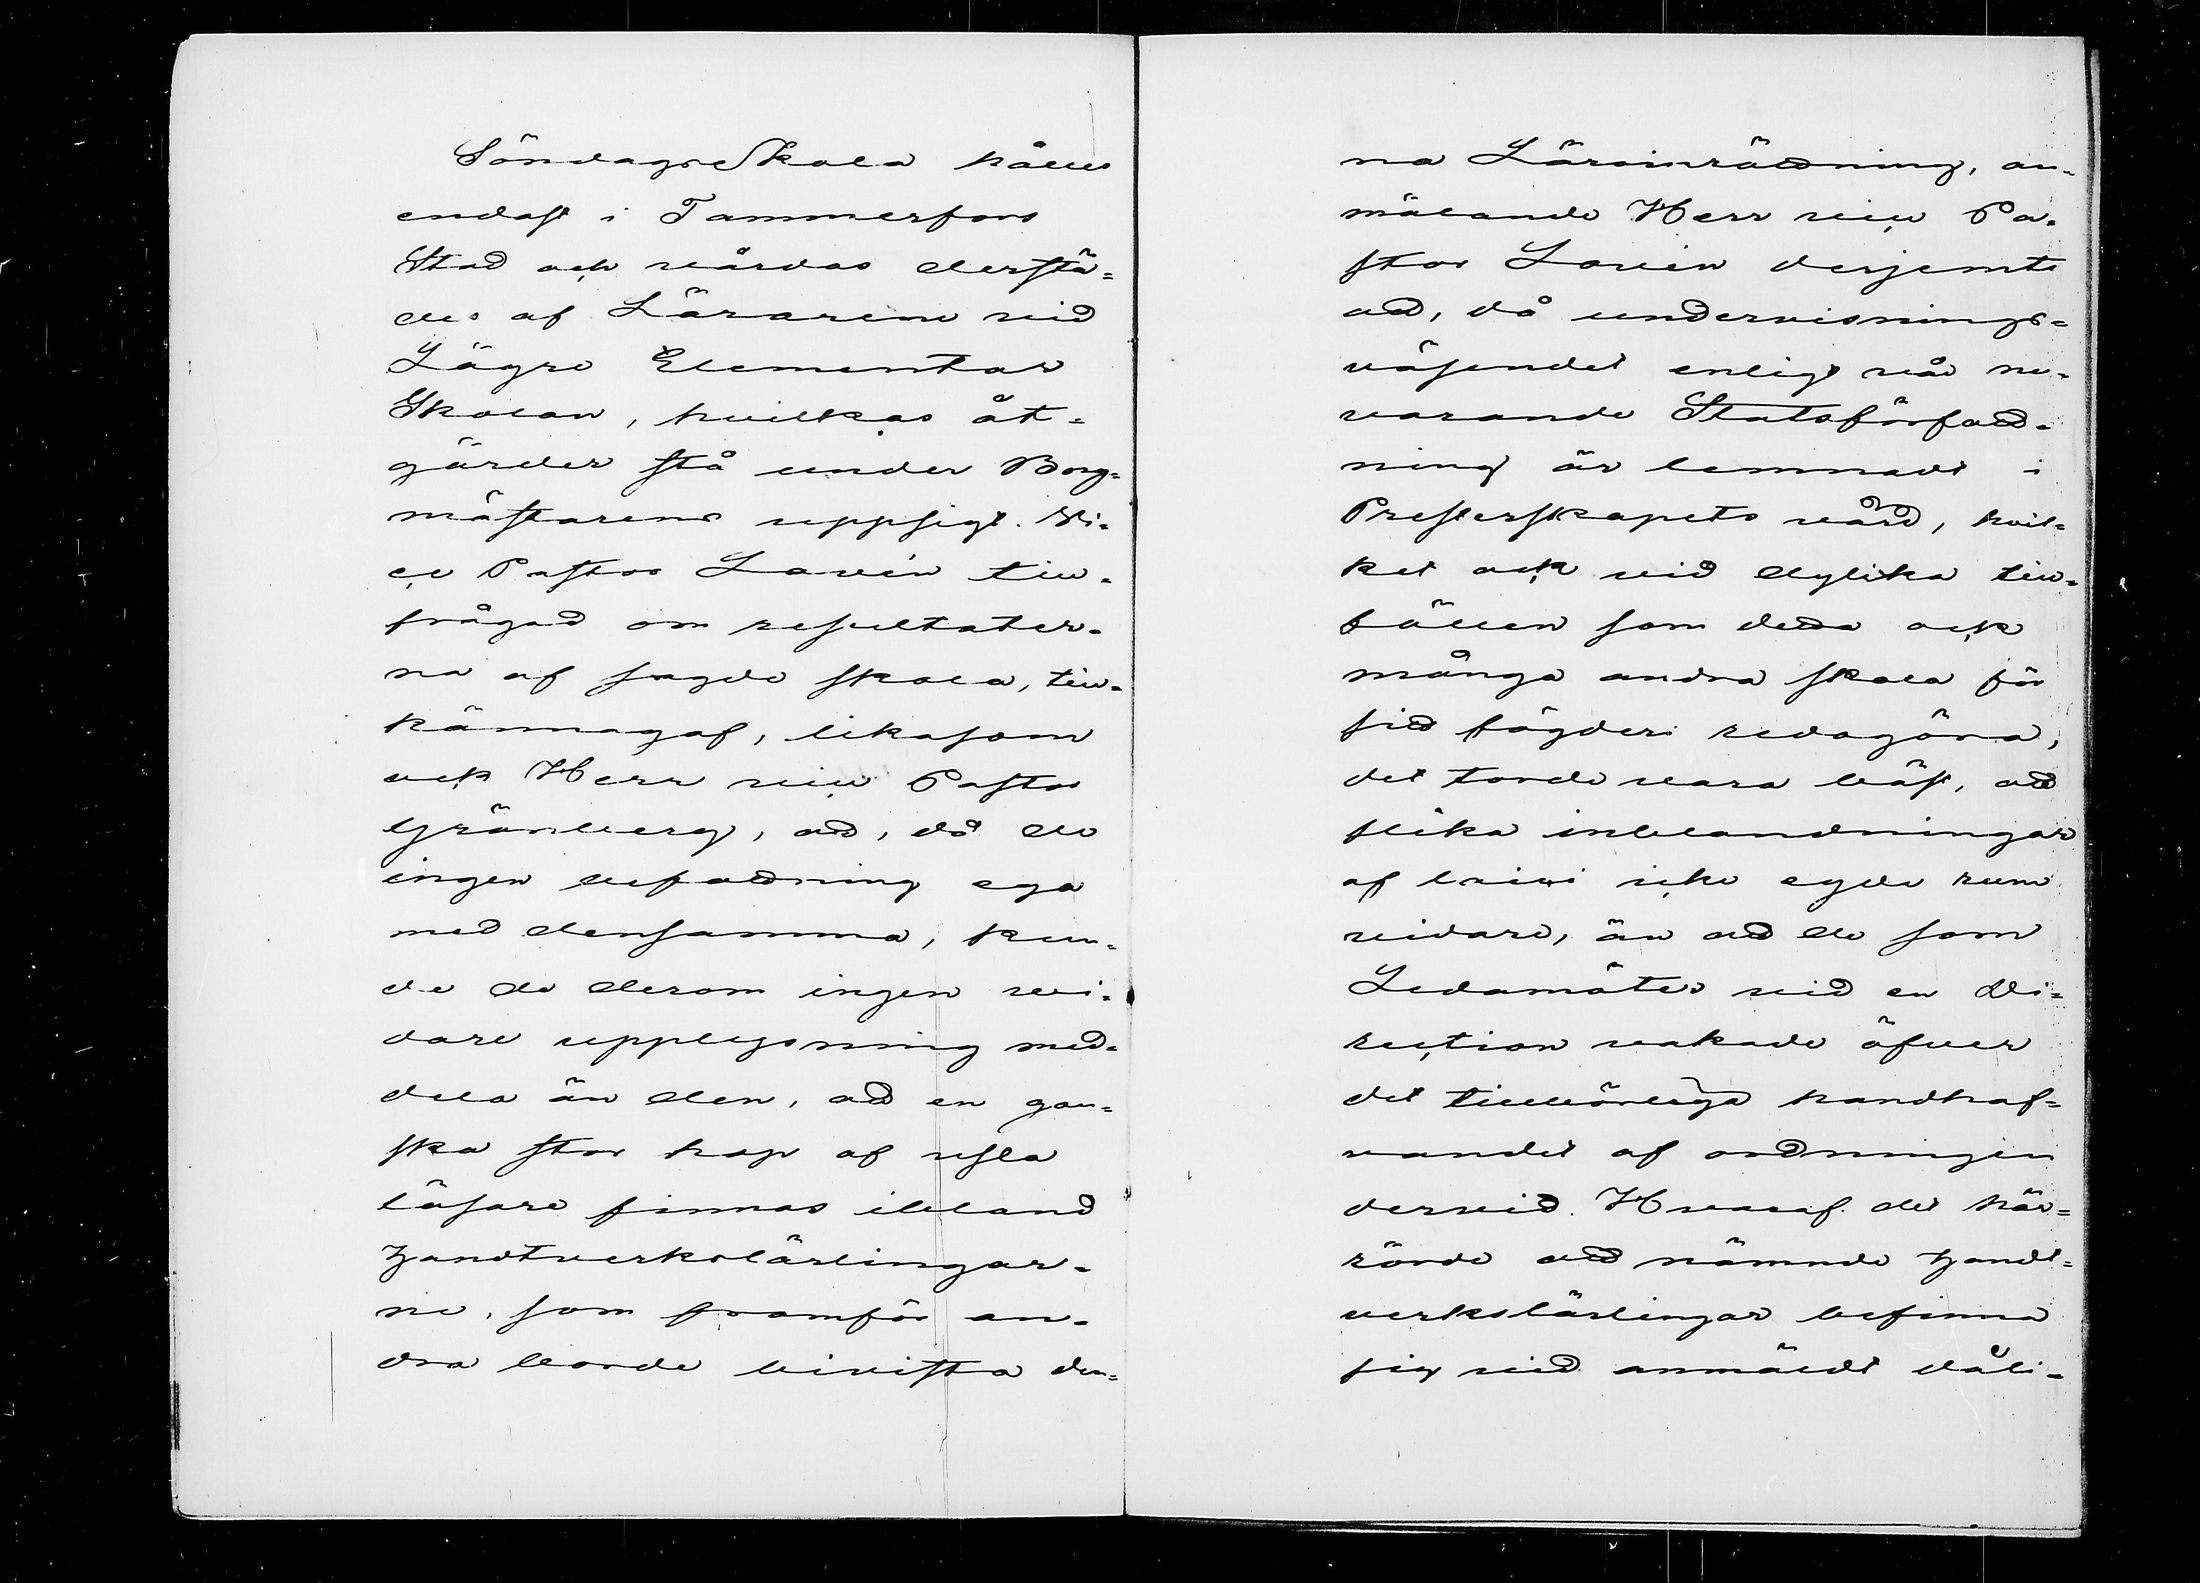 Söndagsskola hålles
endast i Tammerfors
Stad och vårdas derstä=
des af Lärarene vid
Lägre Elementar
Skolan, hvilkas åt=
gärder stå under Borg=
mästarens uppsigt. Vi=
ce Pastor Lavén till=
frågad om resultater=
na af sagde skola, till=
kännagaf, likasom
ock Herr vice Pastor
Grönberg, att, då de
ingen befattning ega
med densamma, kun=
de de derom ingen vi=
dare upplysning med=
dela än den, att en gan=
ska stor hop af usla
läsare finnas ibland
handtverkslärlingar=
ne, som framför an=
dra borde bivista den=
na Läroinrättning, an=
mälande Herr vice Pa=
stor Lavén derjemte
att, då undervisnings=
väsendet enligt vår nu=
varande Statsförfatt=
ning är lemnadt i
Presterskapets vård, hvil=
ket ock vid dylika till=
fällen som detta och
många andra skola för
sitt fögderi redogöra,
det torde vara bäst, att
slika inblandningar
af civi icke egde rum
vidare, än att de som
Ledamöter vid en Di=
rection vakade öfver
det tillbörliga handhaf=
vandet af ordningen
dervid. Hvaraf det här=
rörde att nämnde handt=
verkslärlingar befinna
sig vid anmäldt dåli=